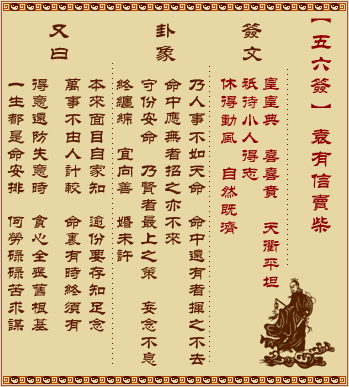 【五六簽】 袁有信賣柴
簽文
皇皇典 喜喜賁 天衢平坦
祇待小人得志
休得動風 自然既濟
卦象
乃人事不如天命 命中還有者揮之不去
命中應無者招之亦不來
守份安命 乃賢者最上之策 妄念不息
終纏綿 宜向善 婚未許
又曰
本來面目自家知 逾份要存知足念
萬事不由人計較 命裏有時終須有
得意還防失意時 貪心全毀舊根基
一生都是命安排 何勞碌碌苦求謀